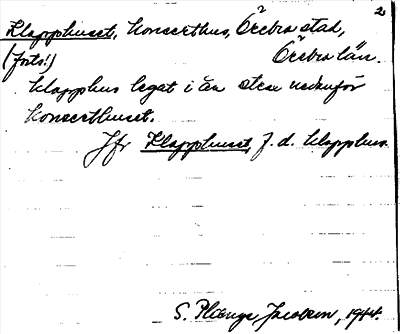 2
Klapphuset, Konserthus, Örebro stad,
(forts!) Örebro län.
Klapphus legat i ån strax nedanför
Konserthuset.
Jfr Klapphuset, f. d. klapphus.
S. Plænge Jacobson, 1944.